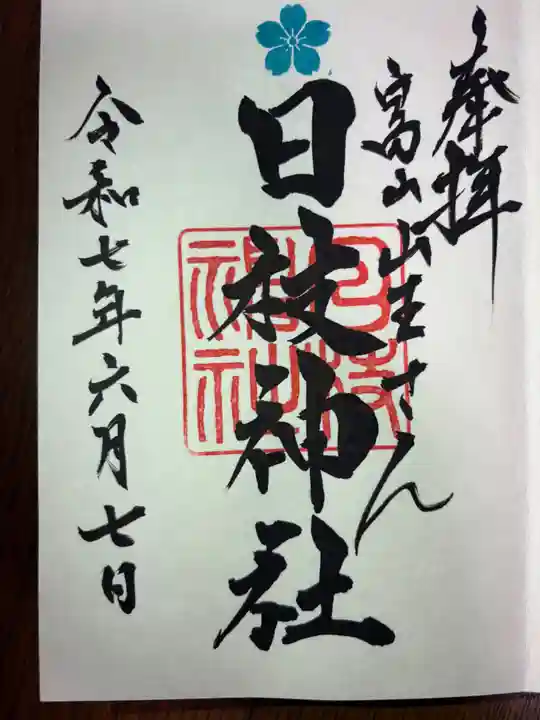 奉拝
富山山王さん
日枝神社
令和七年六月七日